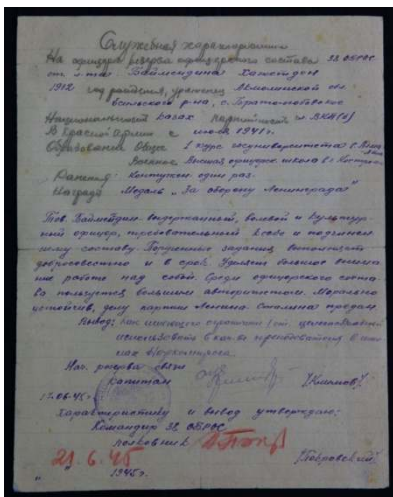 Служебная характеристика
На офицера резерва офицерского состава 32 ОБРОС
ст. л-та Баймелдина Хамитдон
1912 год рождения, уроженец Акмолинской обл.
р-на, с.
Национальность казах партийность чл ВКП(б)
В Красной Армии с июля 1941 г.
Образование общее 2 курс госуниверситета г.
Военное школа г.
Ранения: Контужен один раз.
Награда Медаль „За оборону Ленинграда"
Тов. Баймелдин выдержанный, волевой и культур-
ный офицер, требовательный к себе и подчинен-
ному составу. Порученные задания выполняет
добросовестно и в срок. Уделяет большое внима-
ние работе над собой. Среди офицерского соста-
ва пользуется большим авторитетом. Морально
устойчив, делу партии Ленина Сталина предан.
Вывод: целесообразно
использовать в кач-ве преподавателя в
военкомата.
Нач. резерва связи
капитан /Климов/
17.06.45 г.
Характеристику и вывод утверждаю:
Командир 32 ОБРОС
полковник
21.6.45 /Побровский/
" 1945 г.